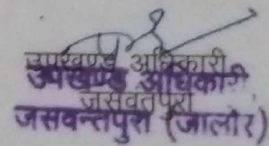 उपखण्ड अधिकारी
उपखण्ड अधिकारी
जसवंतपुरा
जसवन्तपुरा (जालोर)